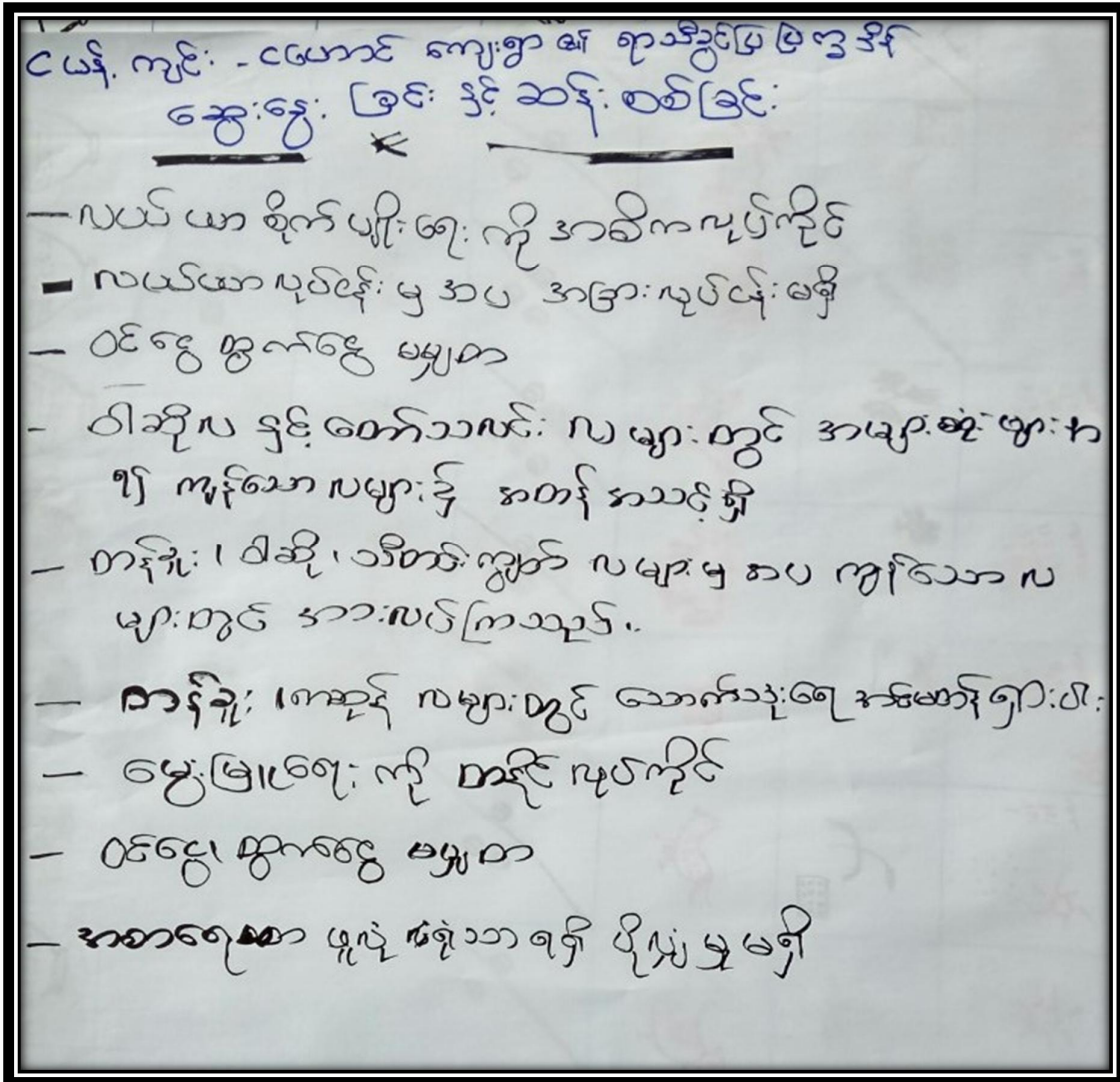 ငယန်.ကျင်း - ငပေဟာင် ကျေးရွာ ၏ ရာသီခွင်ပြ ပြက္ခဒိန်
ဆွေးနွေး ခြင်း နှင့် ဆန်း စစ်ခြင်း
— လယ် ယာ စိုက်ပျိုးရေး ကို အဓိကလုပ်ကိုင်
- လယ်ယာလုပ်ငန်း မှ အပ အခြားလုပ်ငန်း မရှိ
— ဝင်ငွေ ထွက်ငွေ မမျှတ
- ဝါဆိုလ နှင့် တော်သလင်း လ များ တွင် အများဆုံး ဖျားနာ
၍ ကျန်သော လများ၌ အတန် အသင့်ရှိ
— တန်ခူး ၊ ဝါဆို ၊ သီတင်းကျွတ် လများမှ အပ ကျန်သော လ
များတွင် အားလပ်ကြသည်။
— တန်ခူး ၊ကဆုန် လများတွင် သောက်သုံးရေ ရှားပါး
— မွေးမြူရေး ကို တနိုင်လုပ်ကိုင်
— ဝင်ငွေ၊ ထွက်ငွေ မမျှတ
— အစာရေစာ ဖူလုံ ရုံသာ ရရှိ ပိုလျှံမှု မရှိ